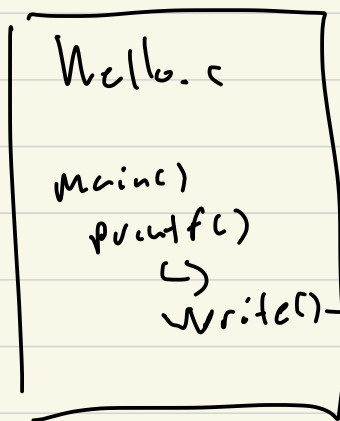 Hello.c
main()
printf()
↳
write()